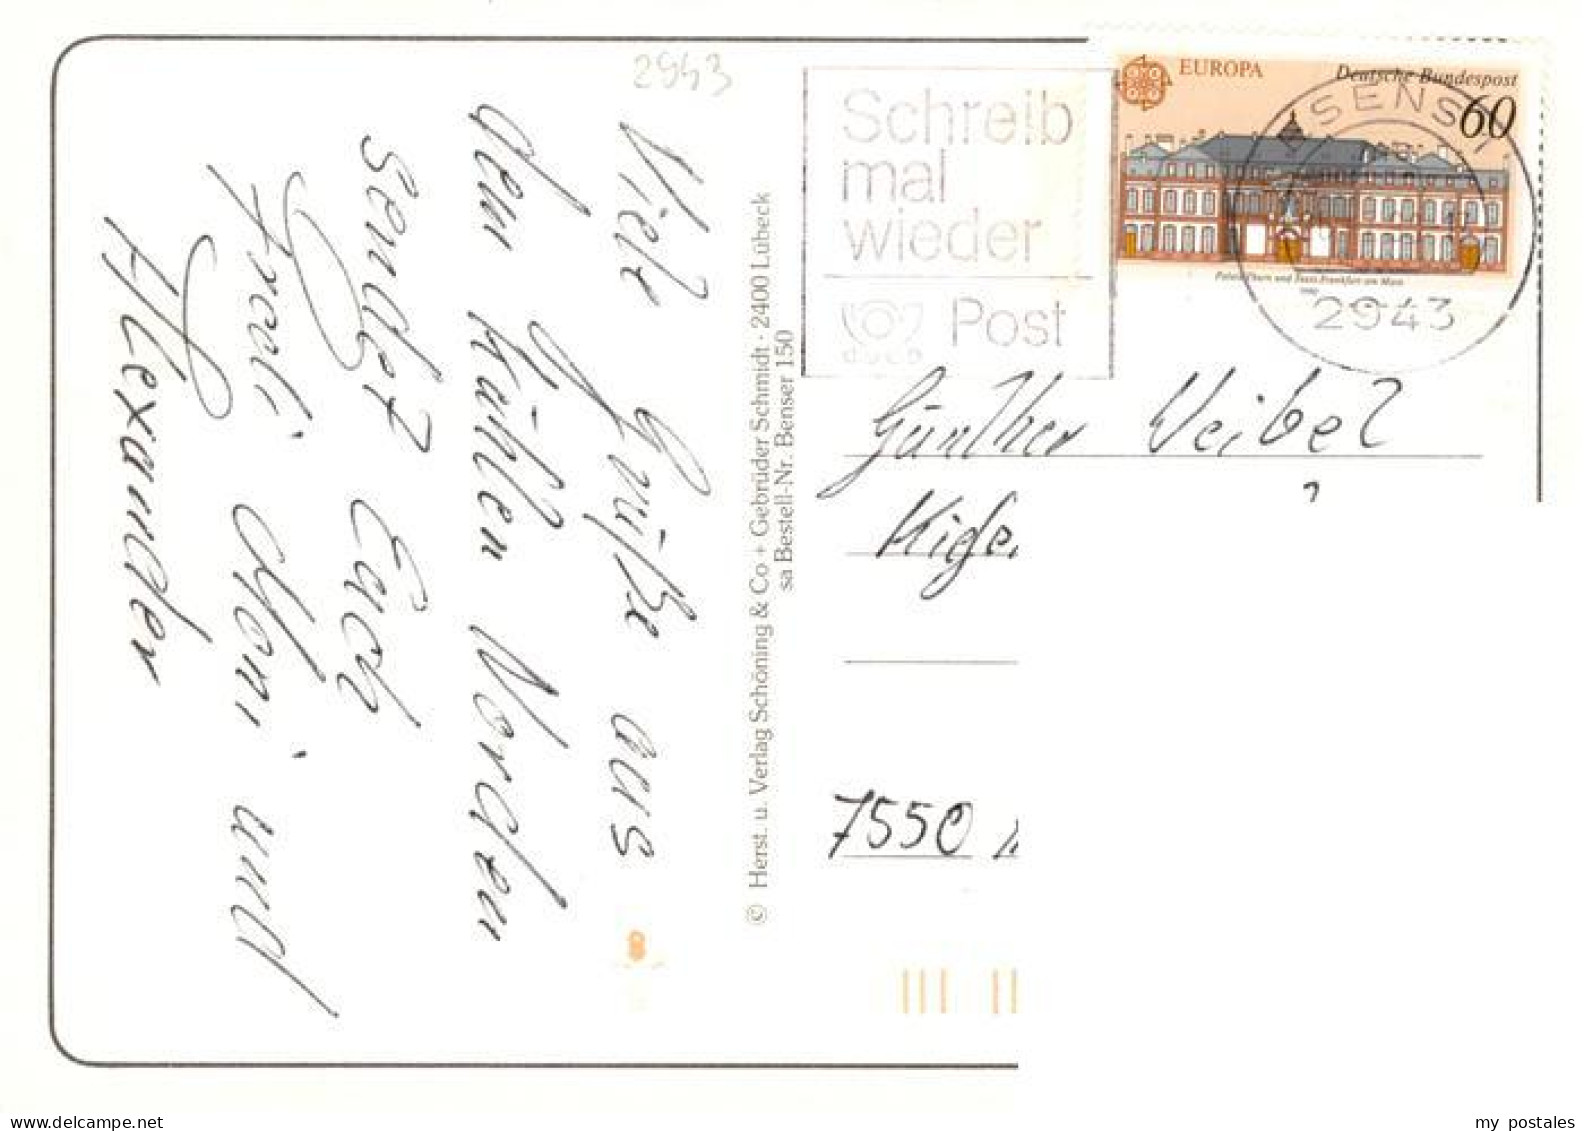 2943
Viele Grüße aus
dem kühlen Norden
sendet Euch
Moni und
Alexander
© Herst. u. Verlag Schöning & Co + Gebrüder Schmidt · 2400 Lübeck
sa Bestell-Nr. Benser 150
Schreib
mal
wieder
Post
EUROPA
Deutsche Bundespost
60
Palais Thurn und Taxis Frankfurt am Main
1990
SENS
2943
Günther Weibel
7550
my postales
delcampe.net